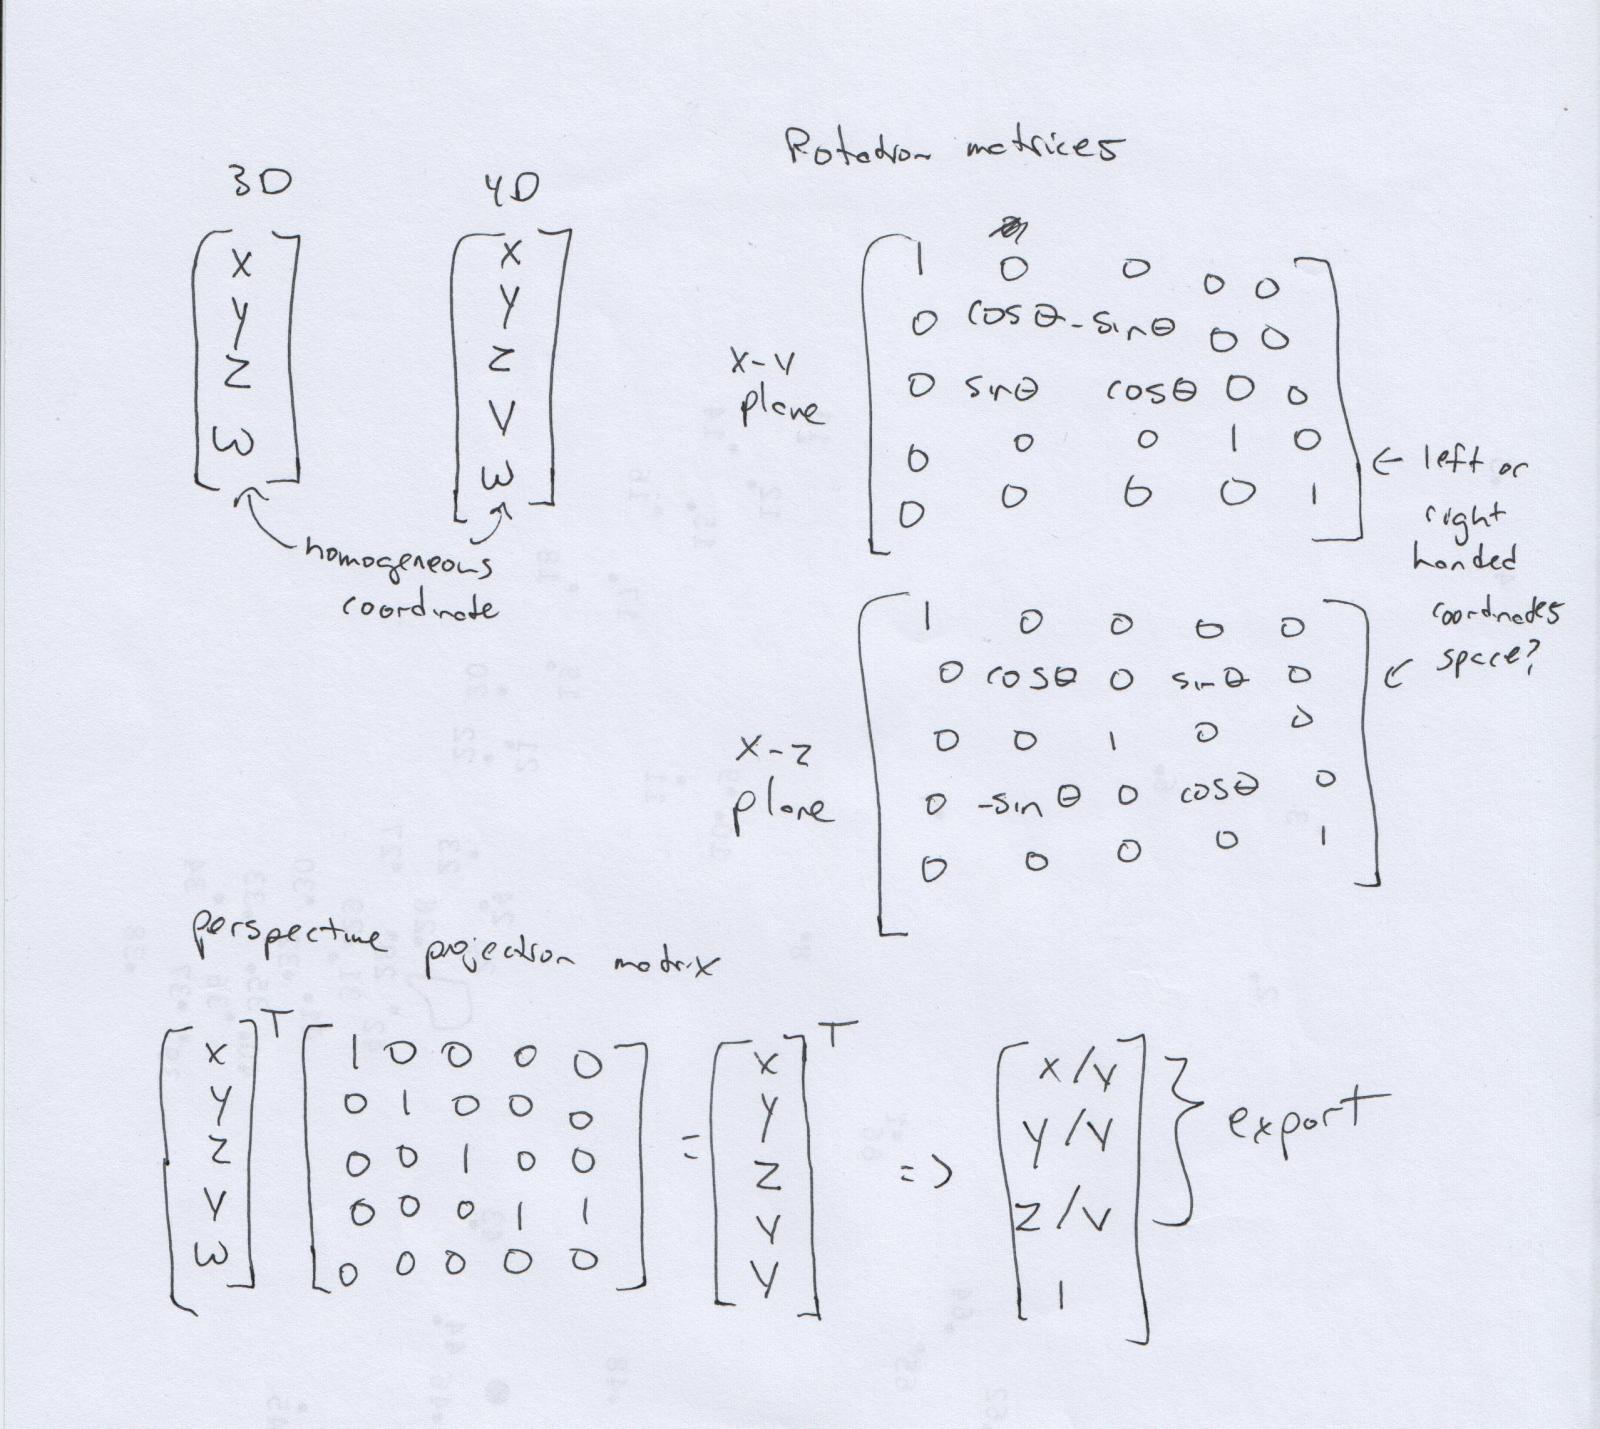 Rotation matrices
3D
4D
x
y
z
w
x
y
z
v
w
homogeneous
coordinate
x-v
plane
1 0 0 0 0
0 cosθ -sinθ 0 0
0 sinθ cosθ 0 0
0 0 0 1 0
0 0 0 0 1
← left or
right
handed
coordinates
← space?
x-z
plane
1 0 0 0 0
0 cosθ 0 sinθ 0
0 0 1 0 0
0 -sinθ 0 cosθ 0
0 0 0 0 1
perspective projection matrix
x
y
z
v
w
T
1 0 0 0 0
0 1 0 0 0
0 0 1 0 0
0 0 0 1 1
0 0 0 0 0
=
x
y
z
v
v
T
=>
x/v
y/v
z/v
1
export